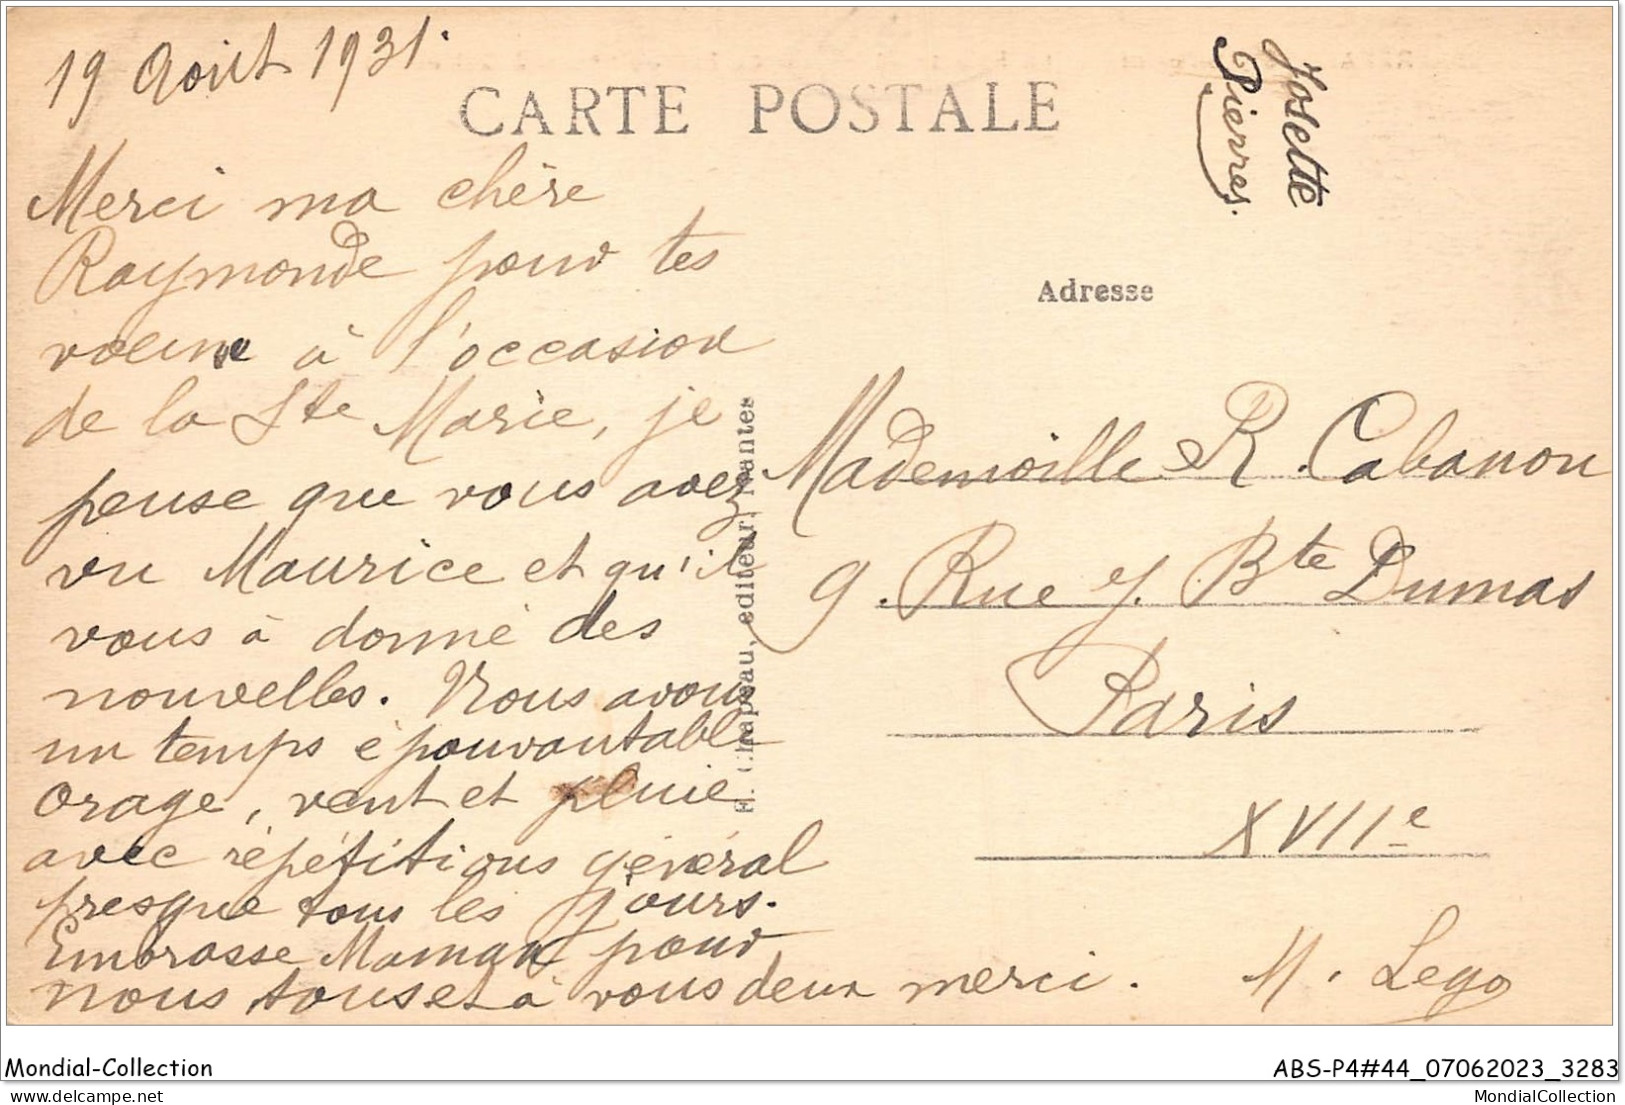 19 Août 1931.
CARTE POSTALE
Josette
Pierres.
Merci ma chère
Raymonde pour tes
voeux à l'occasion
de la Ste Marie, je
pense que vous avez
vu Maurice et qu'il
vous à donné des
nouvelles. Nous avons
un temps épouvantable
orage, vent et pluie
avec répétitions général
presque tous les jours.
Embrasse Maman pour
nous tous et à vous deux merci.
M. Lego
H. Chapeau, editeur, Nantes
Adresse
Mademoille R. Cabanon
9. Rue J. Bte Dumas
Paris
XVIIe
Mondial-Collection
ABS-P4#44_07062023_3283
delcampe.net
MondialCollection